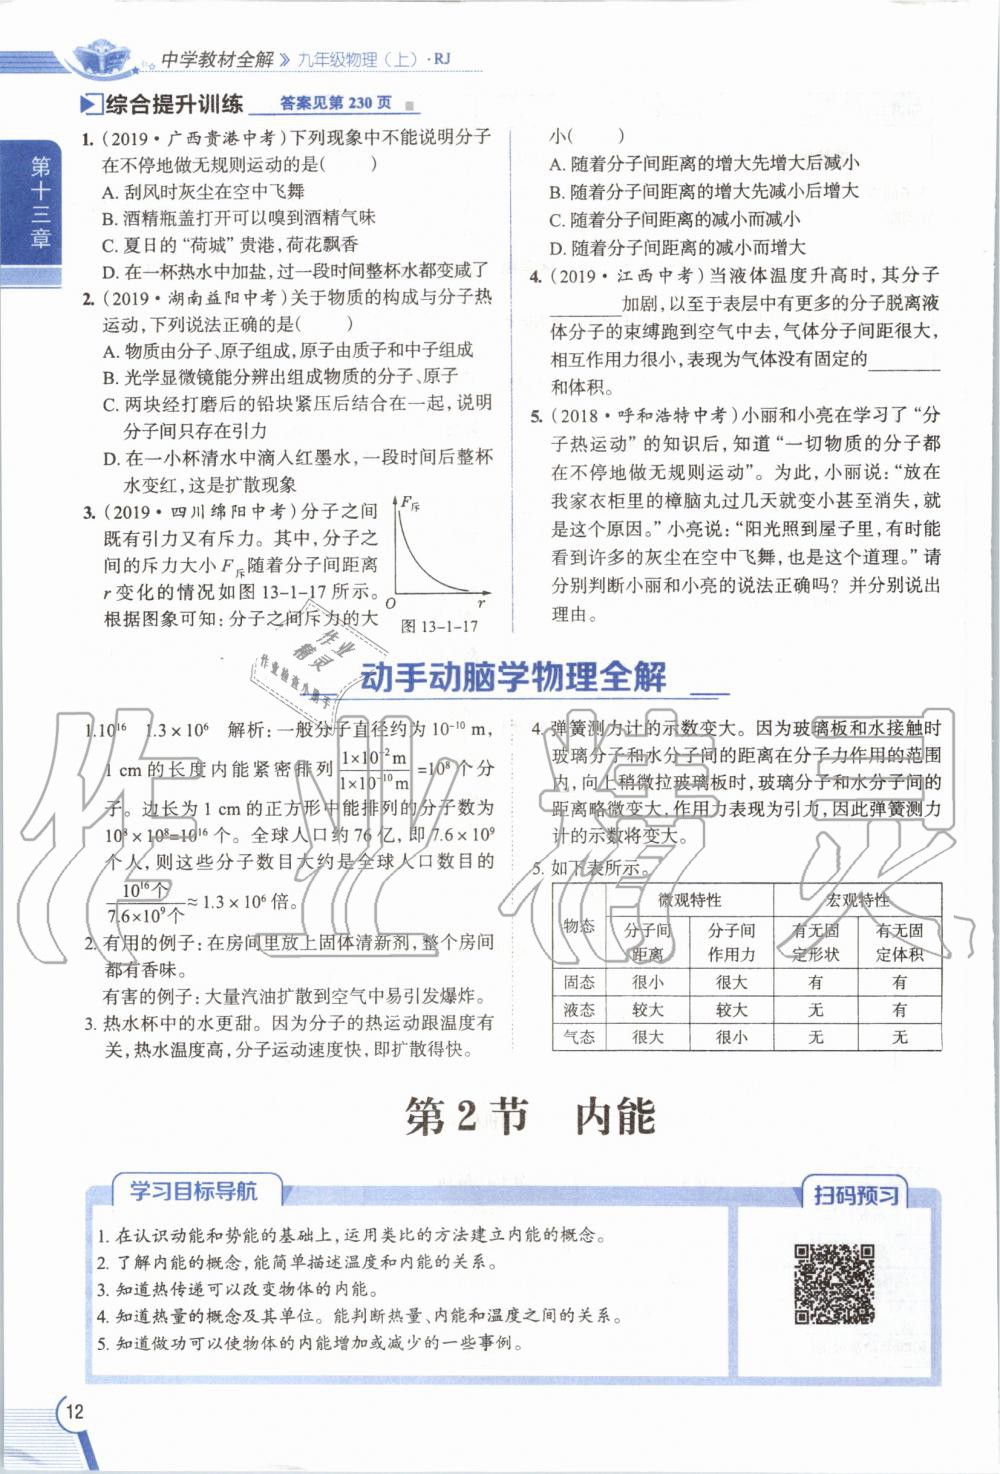 中学教材全解》九年级物理(上)·RJ
综合提升训练 答案见第230页
第十三章
1. (2019·广西贵港中考)下列现象中不能说明分子
在不停地做无规则运动的是(　　)
A. 刮风时灰尘在空中飞舞
B. 酒精瓶盖打开可以嗅到酒精气味
C. 夏日的“荷城”贵港,荷花飘香
D. 在一杯热水中加盐,过一段时间整杯水都变咸了
2. (2019·湖南益阳中考)关于物质的构成与分子热
运动,下列说法正确的是(　　)
A. 物质由分子、原子组成,原子由质子和中子组成
B. 光学显微镜能分辨出组成物质的分子、原子
C. 两块经打磨后的铅块紧压后结合在一起,说明
分子间只存在引力
D. 在一小杯清水中滴入红墨水,一段时间后整杯
水变红,这是扩散现象
3. (2019·四川绵阳中考)分子之间
既有引力又有斥力。其中,分子之
间的斥力大小F斥随着分子间距离
r变化的情况如图13-1-17所示。
根据图象可知:分子之间斥力的大
F斥
O r
图13-1-17
小(　　)
A. 随着分子间距离的增大先增大后减小
B. 随着分子间距离的增大先减小后增大
C. 随着分子间距离的减小而减小
D. 随着分子间距离的减小而增大
4. (2019·江西中考)当液体温度升高时,其分子
________加剧,以至于表层中有更多的分子脱离液
体分子的束缚跑到空气中去,气体分子间距很大,
相互作用力很小,表现为气体没有固定的________
和体积。
5. (2018·呼和浩特中考)小丽和小亮在学习了“分
子热运动”的知识后,知道“一切物质的分子都
在不停地做无规则运动”。为此,小丽说:“放在
我家衣柜里的樟脑丸过几天就变小甚至消失,就
是这个原因。”小亮说:“阳光照到屋子里,有时能
看到许多的灰尘在空中飞舞,也是这个道理。”请
分别判断小丽和小亮的说法正确吗?并分别说出
理由。
动手动脑学物理全解
1. 10¹⁶　1.3×10⁶　解析:一般分子直径约为10⁻¹⁰ m,
1 cm的长度内能紧密排列 1×10⁻² m / 1×10⁻¹⁰ m =10⁸个分
子。边长为1 cm的正方形中能排列的分子数为
10⁸×10⁸=10¹⁶个。全球人口约76亿,即7.6×10⁹
个人,则这些分子数目大约是全球人口数目的
10¹⁶个 / 7.6×10⁹个 ≈1.3×10⁶倍。
2. 有用的例子:在房间里放上固体清新剂,整个房间
都有香味。
有害的例子:大量汽油扩散到空气中易引发爆炸。
3. 热水杯中的水更甜。因为分子的热运动跟温度有
关,热水温度高,分子运动速度快,即扩散得快。
4. 弹簧测力计的示数变大。因为玻璃板和水接触时
玻璃分子和水分子间的距离在分子力作用的范围
内,向上稍微拉玻璃板时,玻璃分子和水分子间的
距离略微变大,作用力表现为引力,因此弹簧测力
计的示数将变大。
5. 如下表所示。
物态 微观特性 宏观特性
分子间距离 分子间作用力 有无固定形状 有无固定体积
固态 很小 很大 有 有
液态 较大 较大 无 有
气态 很大 很小 无 无
作业精灵
作业检查小助手
作业精灵
第2节　内能
学习目标导航
扫码预习
1. 在认识动能和势能的基础上,运用类比的方法建立内能的概念。
2. 了解内能的概念,能简单描述温度和内能的关系。
3. 知道热传递可以改变物体的内能。
4. 知道热量的概念及其单位。能判断热量、内能和温度之间的关系。
5. 知道做功可以使物体的内能增加或减少的一些事例。
12